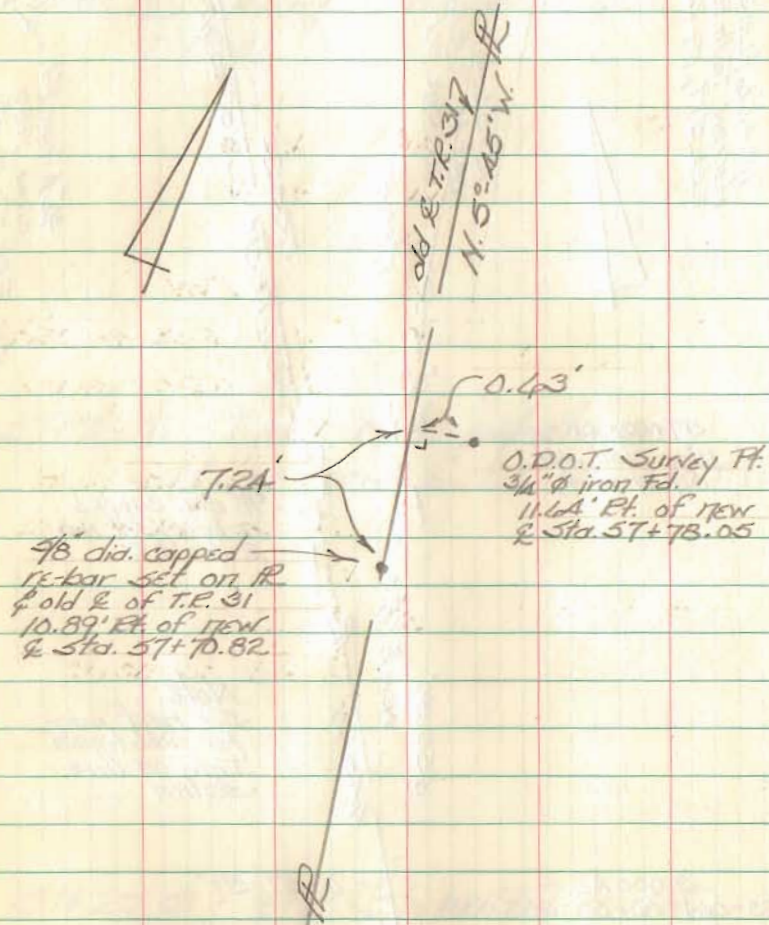 PL
old ℄ T.R. 31
N. 5°-45' W.
0.43'
7.24'
O.D.O.T. Survey Pt.
3/4" ø iron Fd.
11.64' Rt. of new
℄ Sta. 57+78.05
5/8" dia. capped
re-bar set on PL
& old ℄ of T.R. 31
10.89' Rt. of new
℄ Sta. 57+70.82
PL